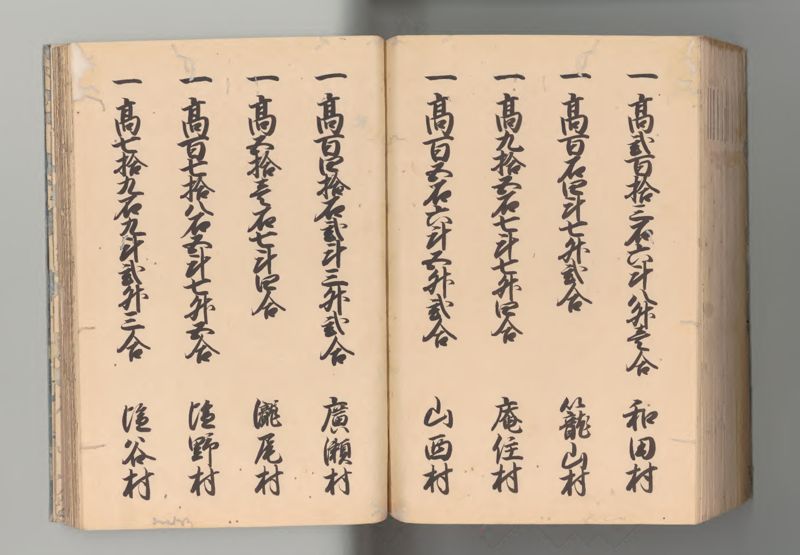 一高弐百拾三石六斗八升壱合 和田村
一高百石四斗七升弐合 籠山村
一高九拾五石七斗七升四合 庵住村
一高百五石六斗五升弐合 山西村
一高百四拾石弐斗三升弐合 廣瀬村
一高五拾壱石七斗四合 瀧尾村
一高百七拾八石五斗七升五合 塩野村
一高七拾九石九斗弐升三合 塩谷村